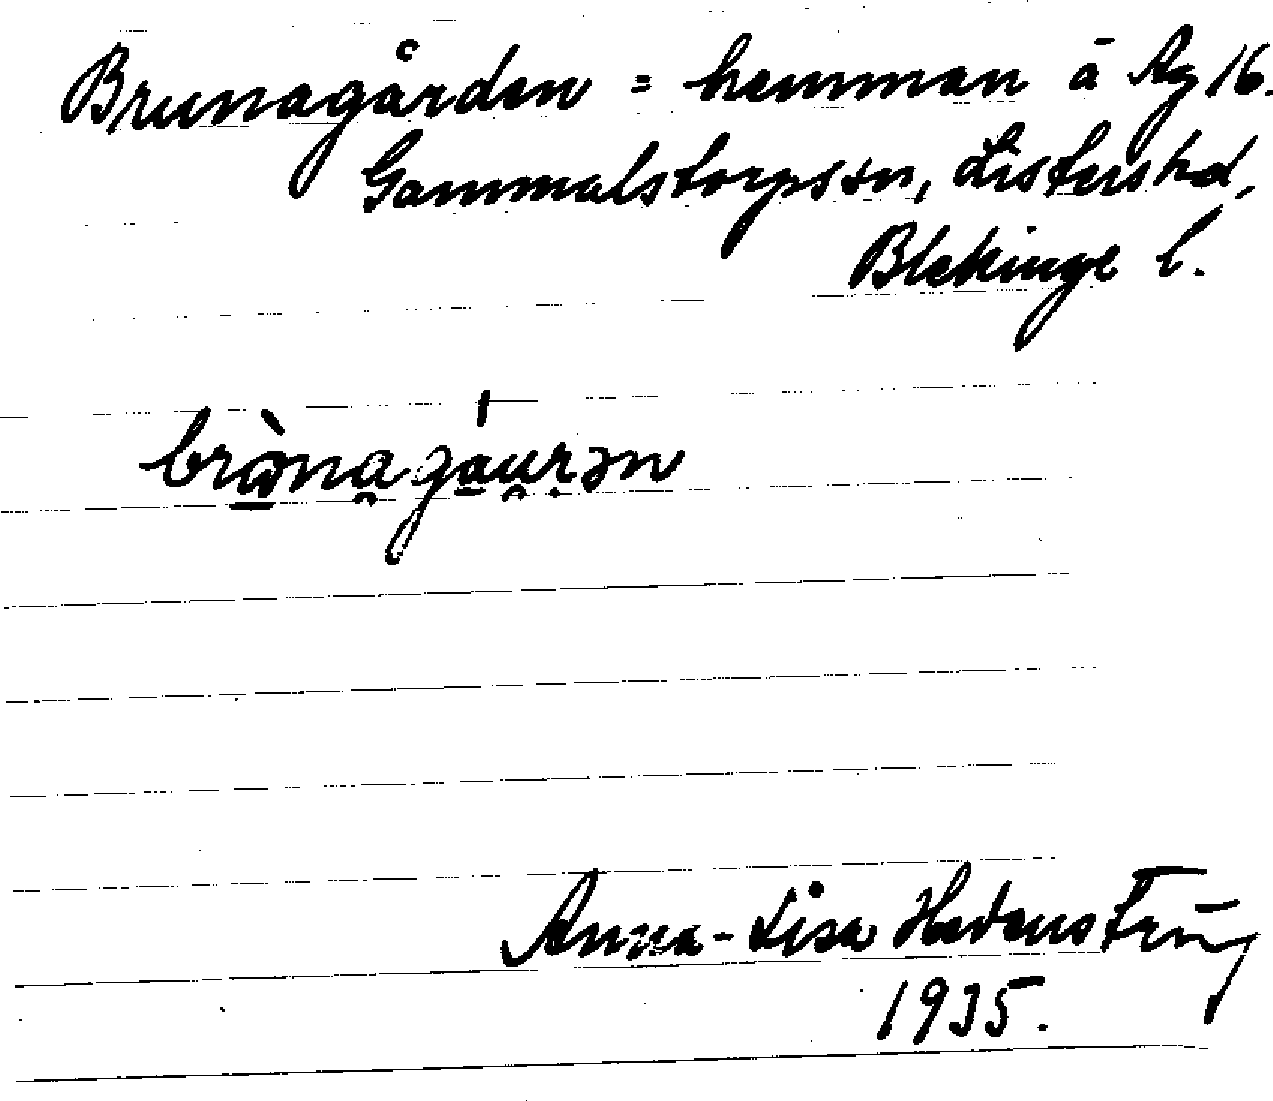 Brunagården = hemman å Ag 16.
Gammalstorps sn, Listers hd,
Blekinge l.
brὼ̠na̯gá̠u̯ṛən
Anna-Lisa Hedenstierna
1935.